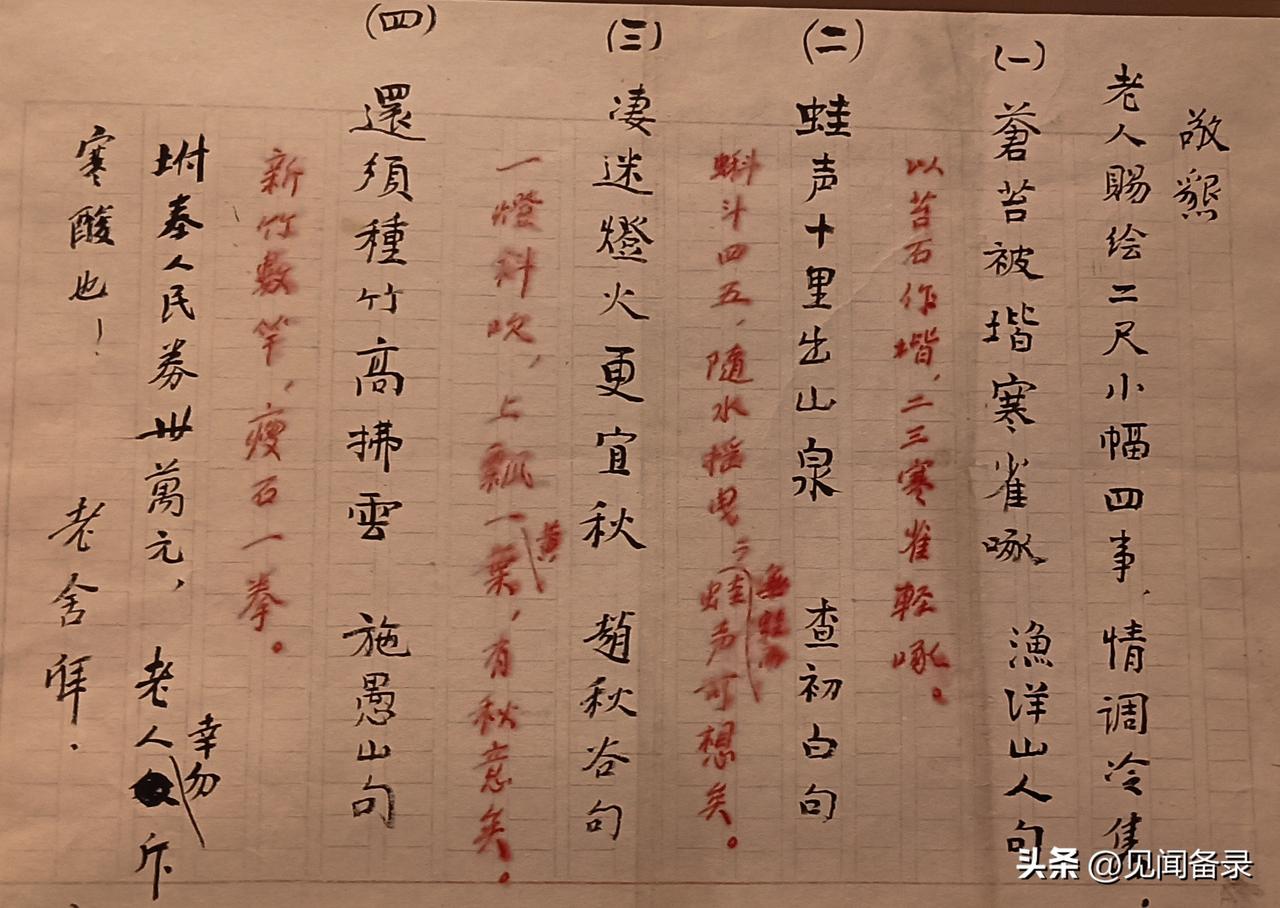 敬懇
老人賜绘二尺小幅四事，情调冷隽．
(一) 蒼苔被堦寒雀啄 漁洋山人句
以苔石作堦，二三寒雀輕啄。
(二) 蛙声十里出山泉 查初白句
蝌斗四五，随水摇曳，無蛙而蛙声可想矣。
(三) 凄迷燈火更宜秋 趙秋谷句
一燈斜吹，上飄一黄葉，有秋意矣。
(四) 還須種竹高拂雲 施愚山句
新竹數竿，瘦石一拳。
坿奉人民券卅萬元，老人幸勿斥
寒酸也！ 老舍拜．
头条 @见闻备录